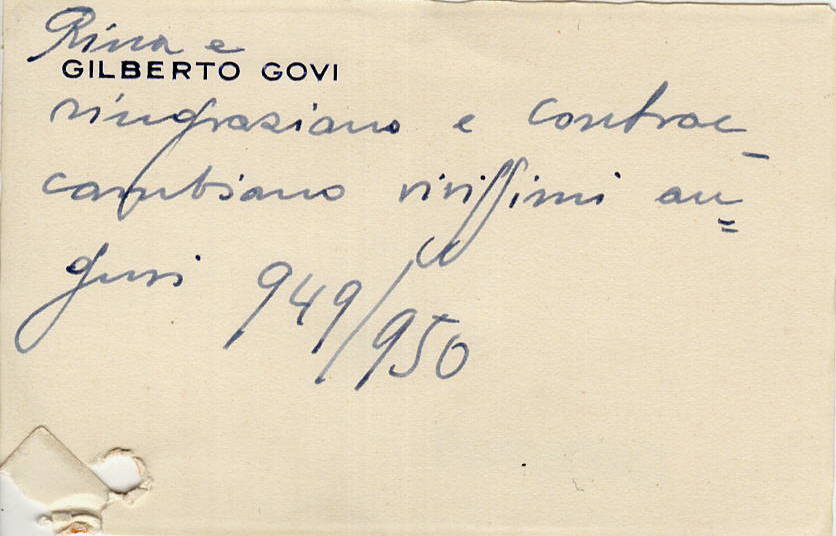 Rina e
GILBERTO GOVI
ringraziano e contrac-
cambiano vivissimi au=
guri 949/950